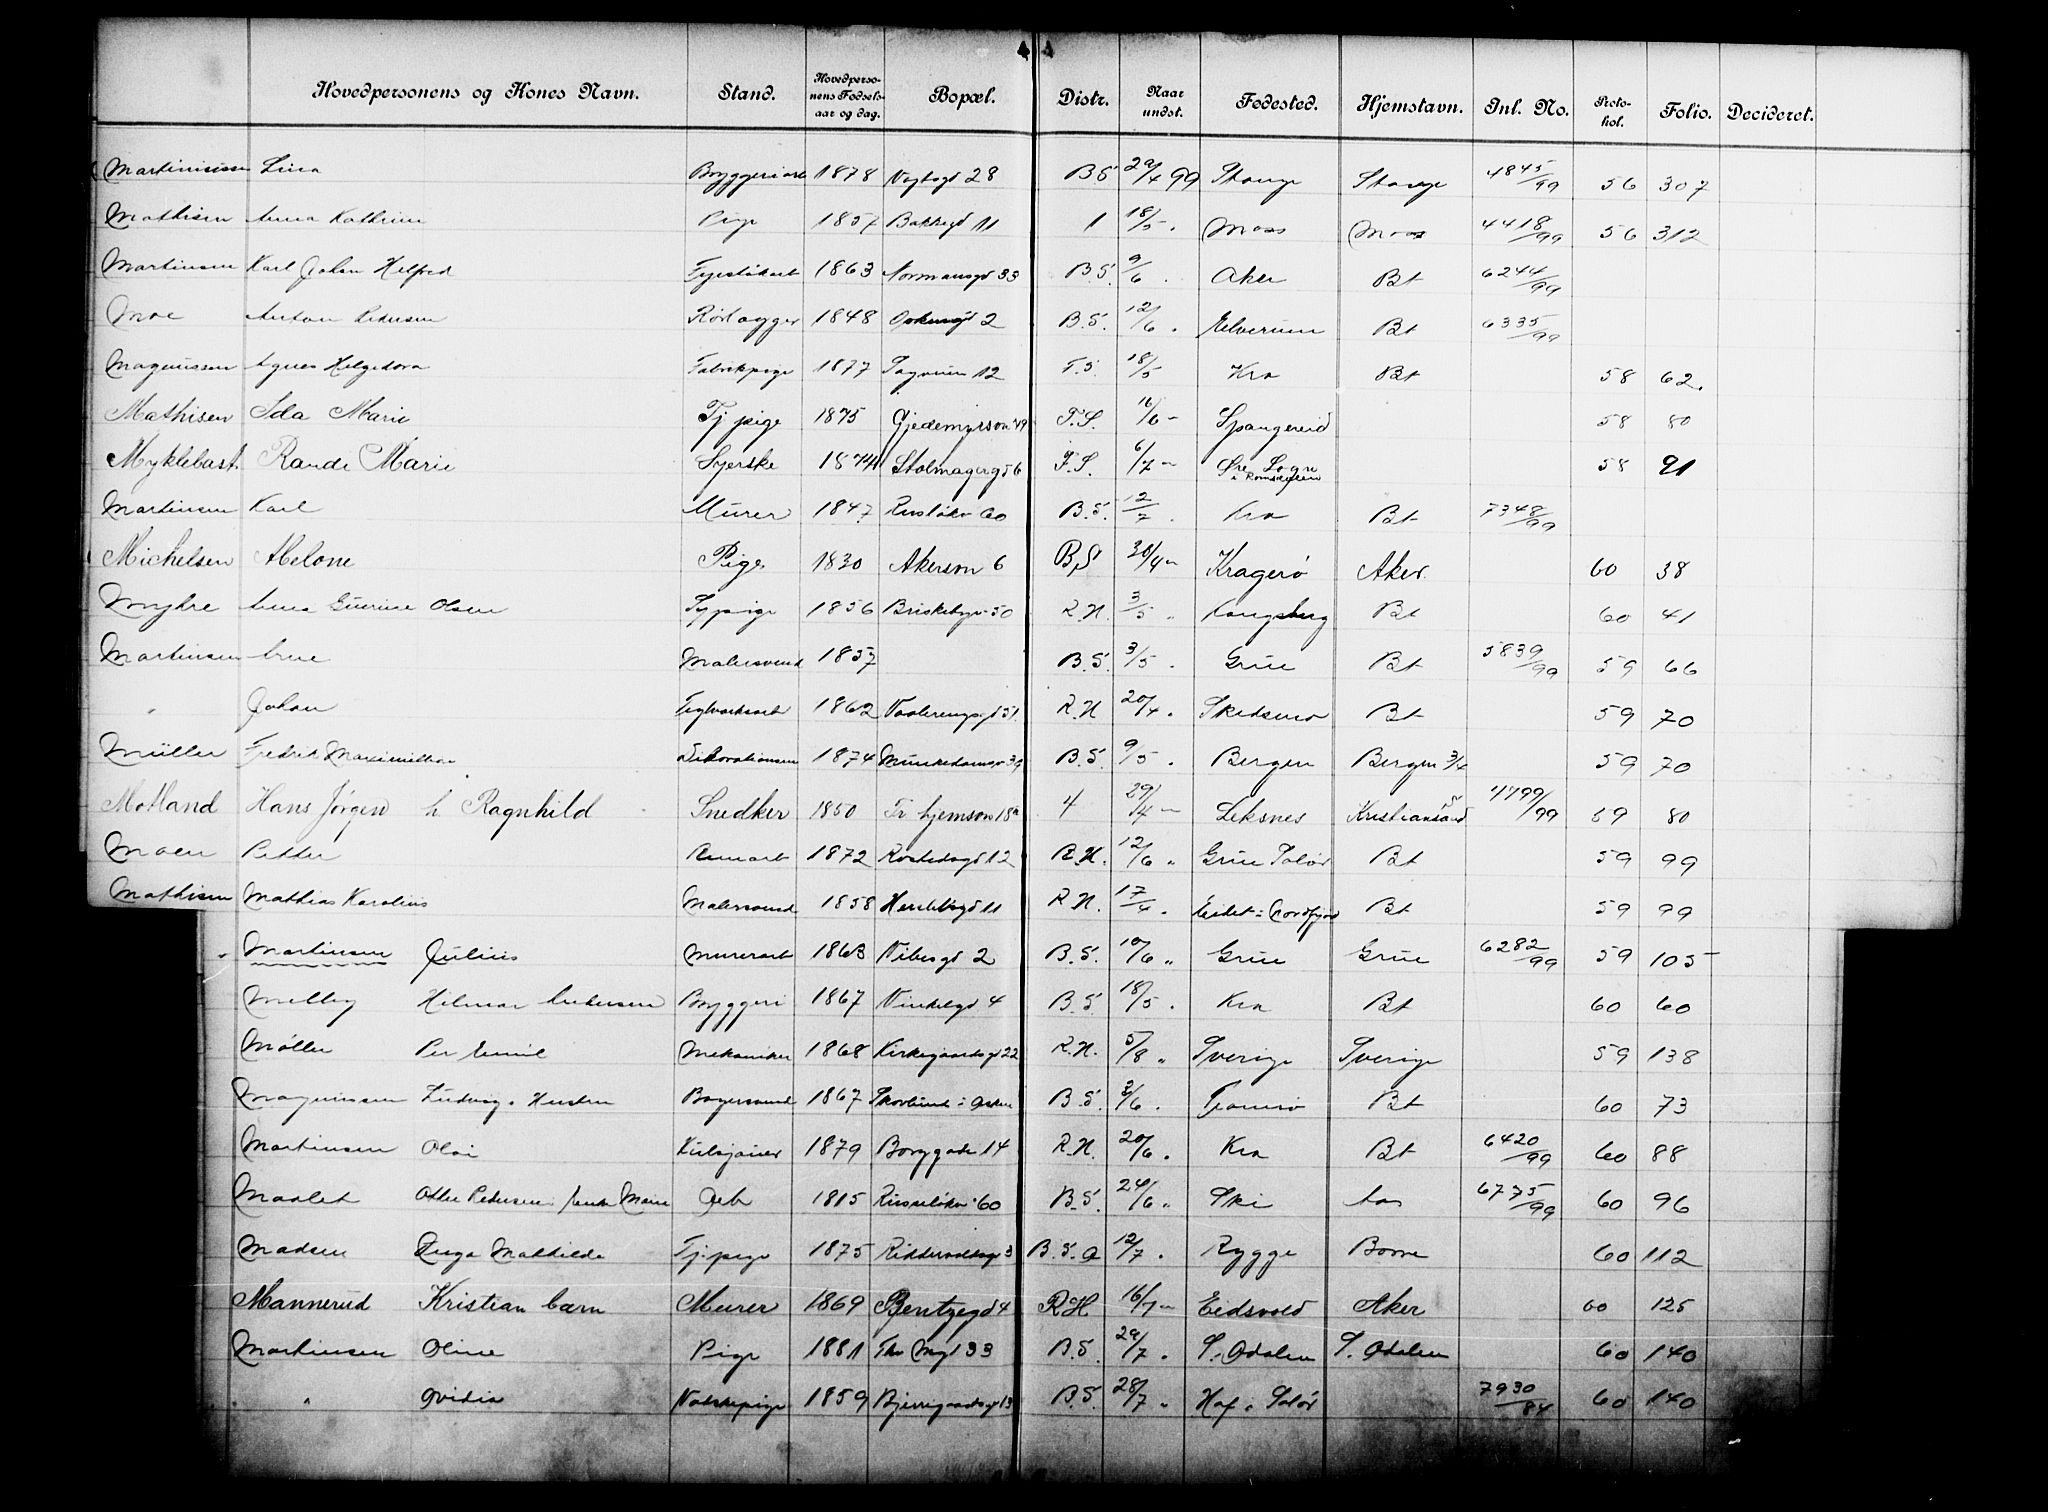 Hovedpersonens og Kones Navn. Stand. Hovedpersonens Fødselsaar og dag. Bopæl. Distr. Naar undst. Fødested. Hjemstavn. Inl. No. Protokol. Folio. Decideret.
Martinussen Lina Bryggeriarb 1878 Vogtsgd 28 B.S. 29/4 99 Stange Stange 4845/99 56 307
Mathisen Anna Kathrine Pige 1857 Bakkegd 11 1 18/5 Moss Moss 4418/99 56 312
Martinsen Karl Johan Helfred 1863 Normansgd 33 B.S. 9/6 Aker Bt 6244/99
Moe Anton Pedersen Rørlægger 1848 2 B.S. 12/6 " Elverum Bt 6335/99
Magnussen Agnes Helgedora Fabrikpige 1877 12 F.S. 18/5 Kra Bt 58 62.
Mathisen Ida Marie Tj pige 1875 Gjedemyrson 49 F.S. 16/6 - Spangereid 58 80
Myklebast. Rande Marie Syerske 1874 Stolmagergd 6 F.S. 6/7 - Øre Sogn i Romsdalen 58 91
Martinsen Karl Murer 1847 Rusløkv 60 B.S. 12/7 Kra Bt 7348/99
Michelsen Abelone Pige 1830 Akersvn 6 B.S. 30/4 " Kragerø Aker. 60 38
Myhre Anna Gurine Olsen Tj pige 1856 Briskebyv 50 R.H. 3/5 " Kongsberg Bt 60 41
Martinsen Arne Malersvend 1857 B.S. 3/5 . Grue Bt 5839/99 59 66
" Johan Teglverksarb 1862 Vaalerengsgd 51 R.H. 20/4 . Skedsmo Bt 59 70
Müller Fredrik Maximillian Dekorationsm 1874 Munkedamsv 39 B.S. 9/5 . Bergen Bergen 3/4 59 70
Motland Hans Jørgen h Ragnhild Snedker 1850 Tr. hjemsvn 18a 4 29/4 - Leksnes Kristianssand 4799/99 59 80
Moen Petter 1872 Rostedsgd 12 R.H. 12/6 " Grue Solør Bt 59 99
Mathisen Mathias Karolius Malersvend 1858 11 R.H. 17/4 . Eidet i Nordfjord Bt 59 99
" Martinsen Julius Murerarb 1863 Vibesgd 2 B.S. 10/6 " Grue Grue 6282/99 59 105
Melby Hilmar Andersen Bryggeri 1867 Vinkelgd 4 B.S. 18/5 . Kra Bt 60 60
Møller Per Emil Mekaniker 1868 Kirkegaardsgd 22 R.H. 5/8 " Sverige Sverige 59 138
Magnussen Ludvig Bagersvend 1867 Skovlund i Asker B.S. 3/6 . Tromsø Bt 60 73
Martinsen Olai 1879 Borggade 14 R.H. 20/6 . Kra Bt 6420/99 60 88
Maalet Otter Pedersen, enke Marie Arb 1815 Rusløkv 60 B.S. 24/6 " Ski Aas 6775/99 60 96
Madsen Inga Mathilde Tj. pige 1875 Riddervoldsgd 3 B.S. a 12/7 . Rygge Borre 60 112
Mannerud Kristian barn Murer 1869 Bentzegd 4 R.H. 16/7 - Eidsvold Aker 60 125
Martinsen Oline Pige 1881 Th. Mgt 33 B.S. 29/7 . S. Odalen S. Odalen 60 140
" Ovidia Vaskepige 1859 Bjerregaardsgd 13 B.S. 28/7 " Hof i Solør 7930/84 60 140